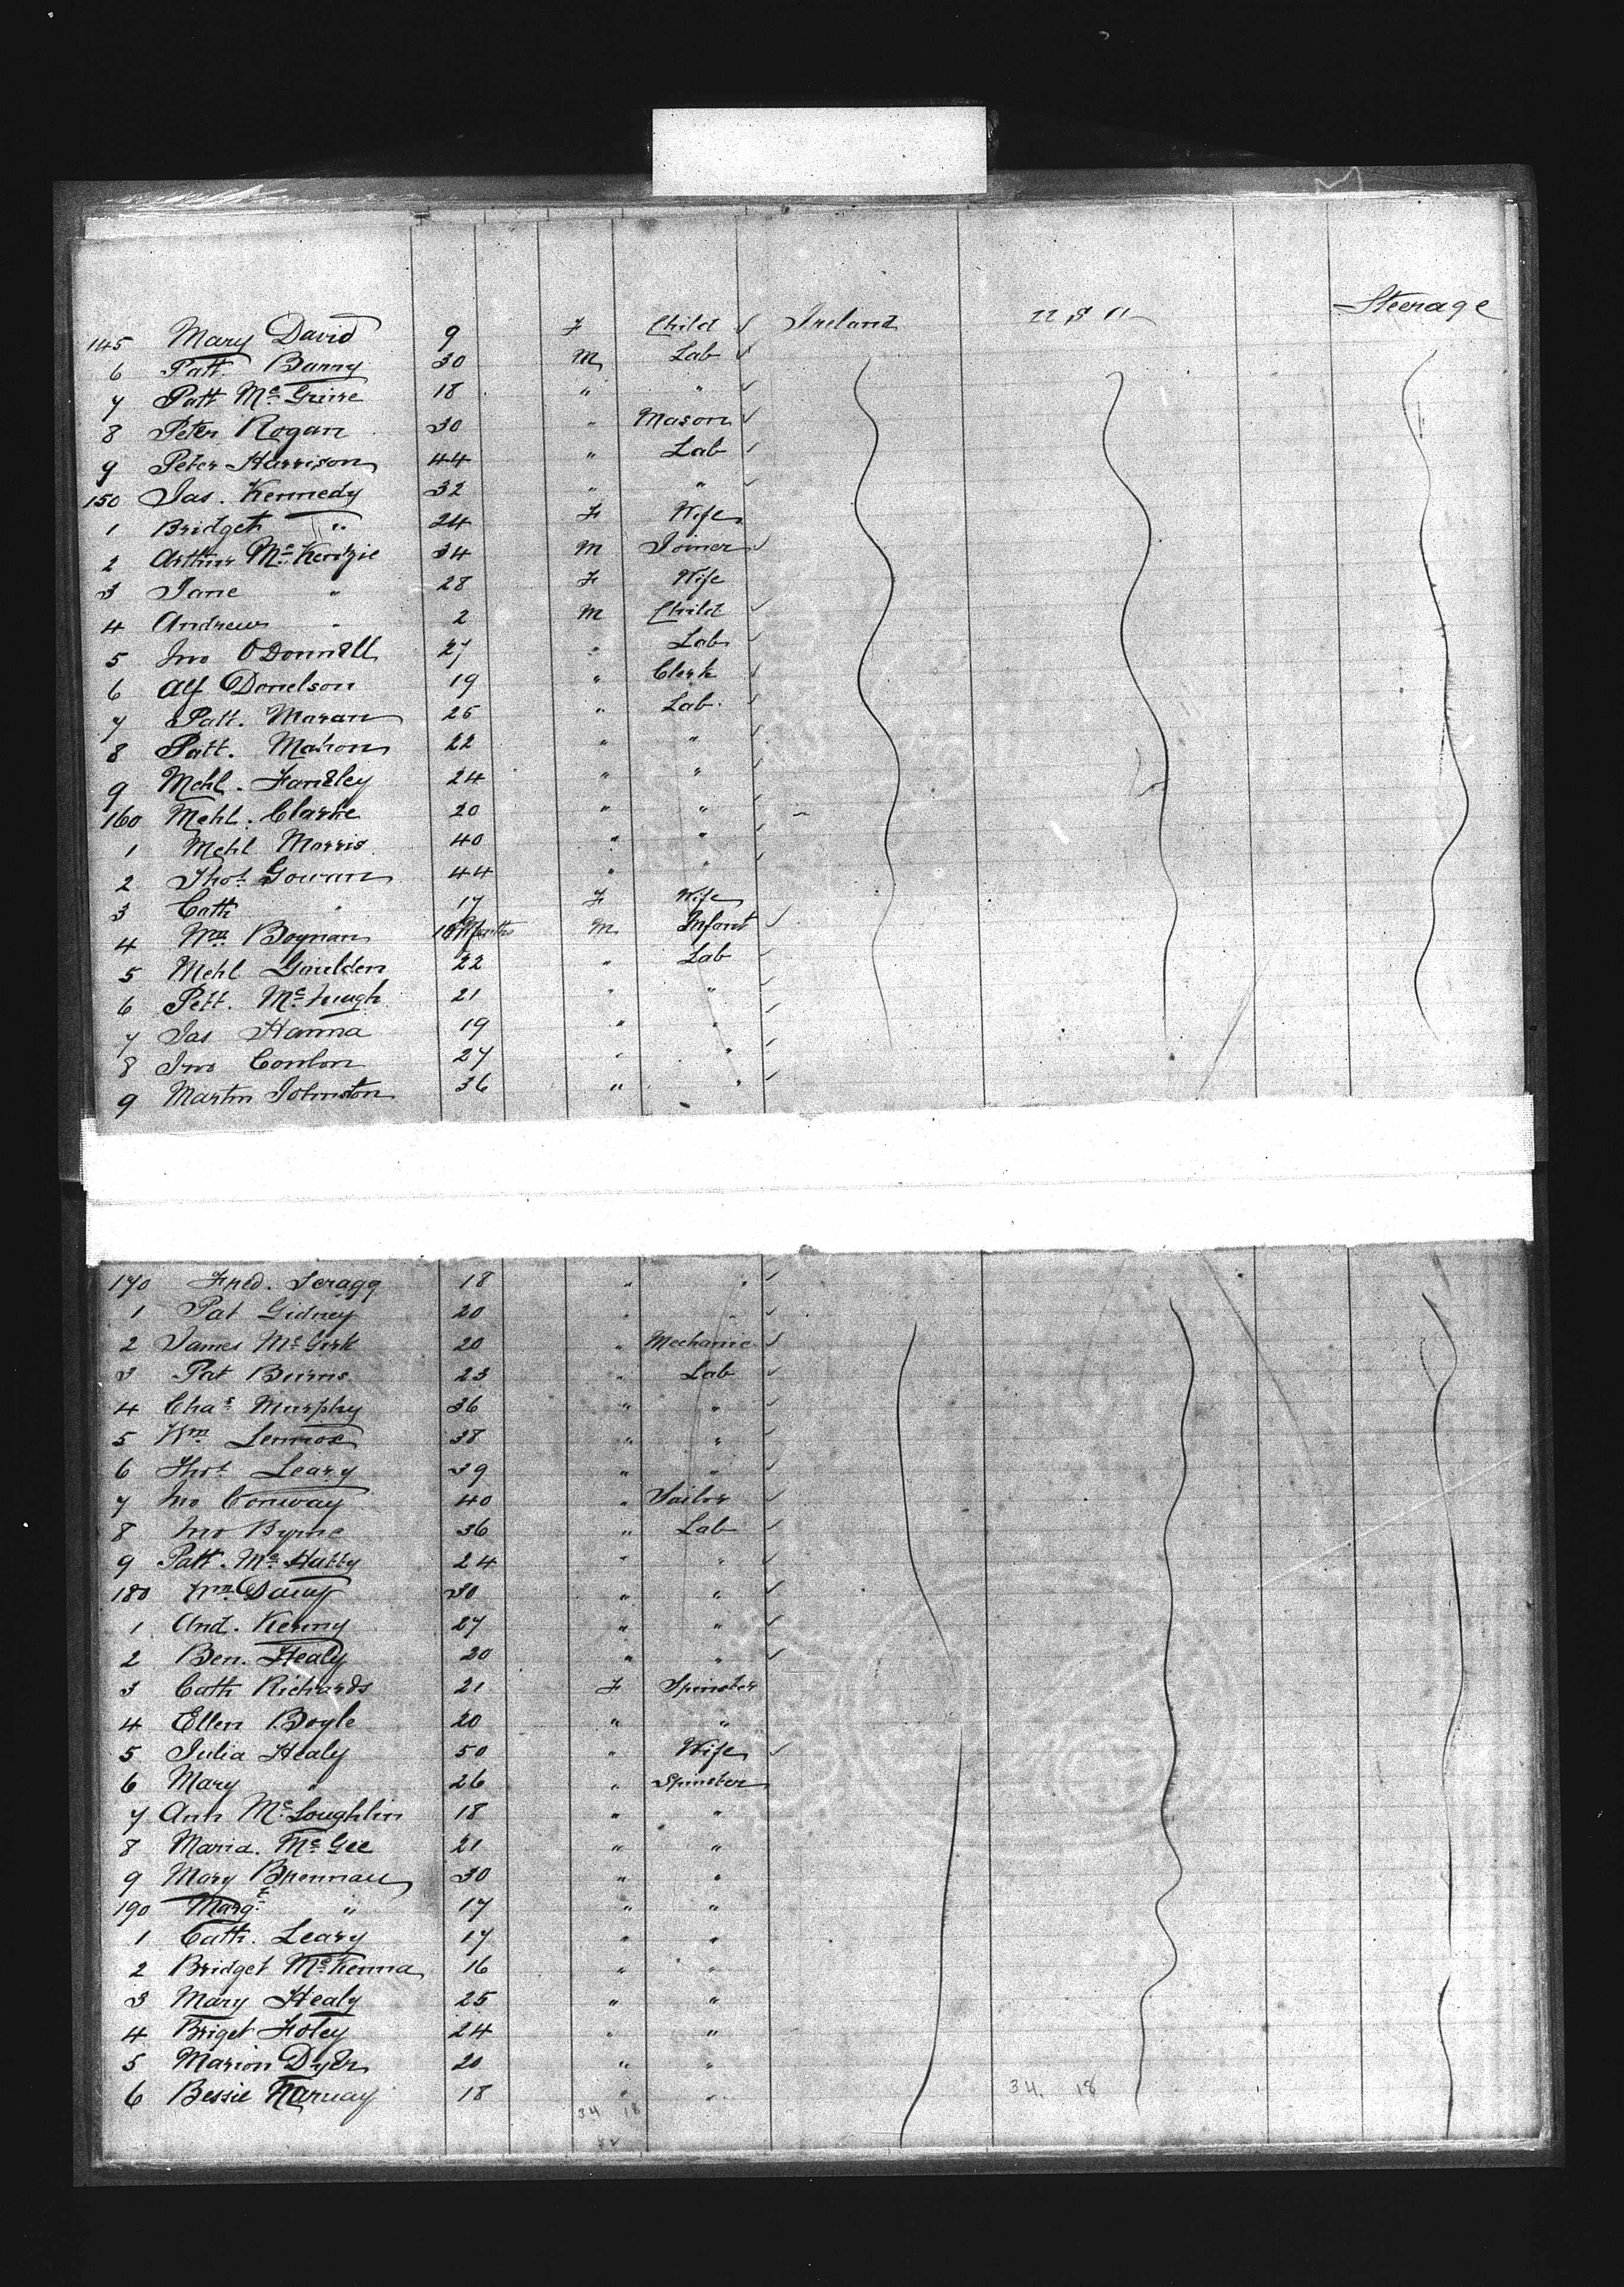 Steerage
145 Mary David 9 F Child ✓ Ireland U S A
6 Patt. Banny 30 M Lab ✓
7 Patt Mc Guire 18 " " ✓
8 Peter Rogan 30 " Mason ✓
9 Peter Harrison 44 " Lab ✓
150 Jas. Kennedy 32 " " ✓
1 Bridget " 24 F Wife
2 Arthur Mc Kenzie 34 M Joiner ✓
3 Jane " 28 F Wife
4 Andrew " 2 M Child ✓
5 Jno O'Donnell 27 " Lab ✓
6 Alf Donelson 19 " Clerk ✓
7 Patt. Moran 25 " Lab. ✓
8 Patt. Mahon 22 " " ✓
9 Mchl. 24 " " ✓
160 Mchl. Clarke 20 " " ✓
1 Mchl Morris 40 " " ✓
2 Thos Gowan 44 " " ✓
3 Cath " 17 F Wife
4 Wm Boynan 10 Months M Infant ✓
5 Mchl Goulden 22 " Lab ✓
6 Patt. Mc Hugh 21 " " ✓
7 Jas Hanna 19 " " ✓
8 Jno Conlon 27 " " ✓
9 Martin Johnston 36 " " ✓
170 Fred. Scragg 18 " " ✓
1 Pat Gidney 20 " " ✓
2 James Mc Girk 20 " Mechanic ✓
3 Pat Burns 23 " Lab ✓
4 Chas Murphy 36 " " ✓
5 Wm Lennox 38 " " ✓
6 Thos Leary 39 " " ✓
7 Jno Conway 40 " Sailor ✓
8 Jno Byrne 36 " Lab ✓
9 Patt. Mc Hatty 24 " " ✓
180 Wm 30 " " ✓
1 And. Kenny 27 " " ✓
2 Ben. Healy 20 " " ✓
3 Cath Richards 21 F Spinster
4 Ellen Boyle 20 " "
5 Julia Healy 50 " Wife ✓
6 Mary " 26 " Spinster
7 Ann Mc Loughlin 18 " "
8 Maria. Mc Gee 21 " "
9 Mary Brennan 30 " "
190 Margt " 17 " "
1 Cath. Leary 17 " "
2 Bridget Mc Kenna 16 " "
3 Mary Healy 25 " "
4 Briget Foley 24 " "
5 Marion Dyer 20 " "
6 Bessie 18 " "
34 18
34 18